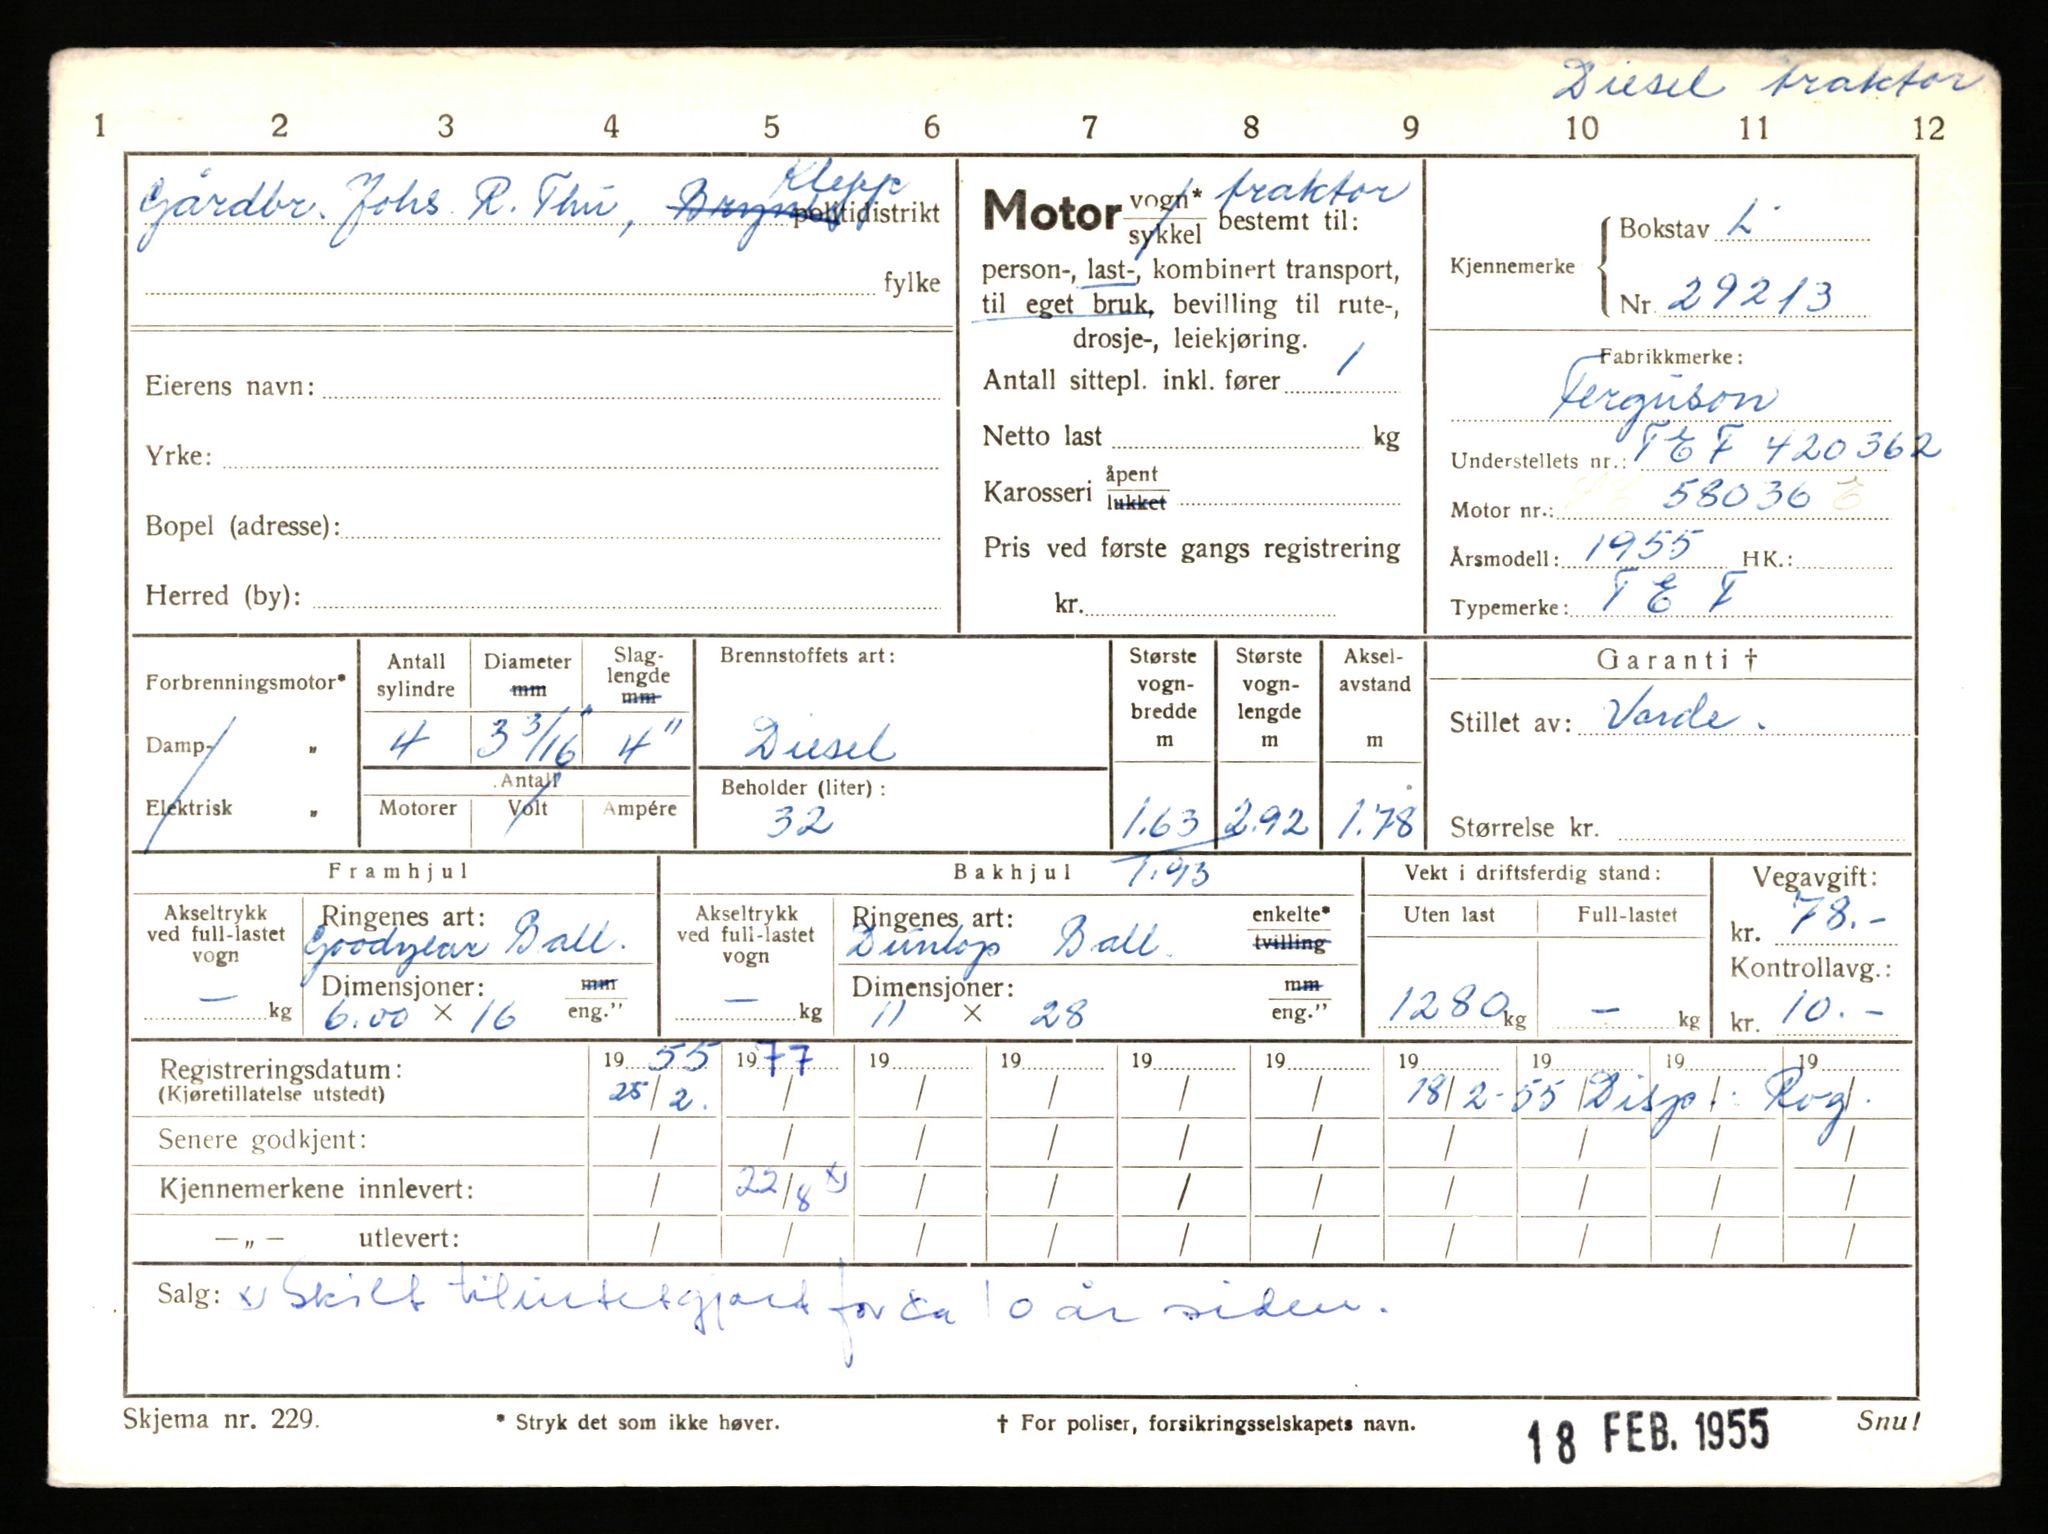 Diesel traktor
1 2 3 4 5 6 7 8 9 10 11 12
Klepp
Gårdbr. Johs R. Thu, politidistrikt
fylke
Eierens navn:
Yrke:
Bopel (adresse):
Herred (by):
traktor
Motor vogn* sykkel bestemt til:
person-, last-, kombinert transport,
til eget bruk, bevilling til rute-,
drosje-, leiekjøring.
Antall sittepl. inkl. fører 1
Netto last kg
Karosseri åpent lukket
Pris ved første gangs registrering
kr.
Kjennemerke
Bokstav L
Nr. 29213
Fabrikkmerke:
Ferguson
Understellets nr.: TEF 420362
Motor nr.: 58036 E
Årsmodell: 1955 HK.:
Typemerke: TEF
Forbrenningsmotor*
Damp- „
Elektrisk „
Antall sylindre
4
Diameter mm
3 3/16"
Slaglengde mm
4"
Antall
Motorer Volt Ampére
Brennstoffets art:
Diesel
Beholder (liter):
32
Største vognbredde m
1.63
1.93
Største vognlengde m
2.92
Akselavstand m
1.78
Garanti †
Stillet av: Varde.
Størrelse kr.
Framhjul
Akseltrykk ved full-lastet vogn
— kg
Ringenes art:
Goodyear Ball.
Dimensjoner: mm
6.00 × 16 eng."
Bakhjul
Akseltrykk ved full-lastet vogn
— kg
Ringenes art: enkelte*
Dunlop Ball. tvilling
Dimensjoner: mm
11 × 28 eng."
Vekt i driftsferdig stand:
Uten last Full-lastet
1280 kg — kg
Vegavgift:
kr. 78.-
Kontrollavg.:
kr. 10.-
Registreringsdatum: 19 55 19 77 19 19 19 19 19 19 19 19
(Kjøretillatelse utstedt) 25/2. / / / / / 18/2-55 Disp.: Rog.
Senere godkjent: / / / / / / / / / /
Kjennemerkene innlevert: / 22/8 x) / / / / / / / /
—„— utlevert: / / / / / / / / / /
Salg: x) Skilt tilintetgjort for ca 10 år siden.
Skjema nr. 229. * Stryk det som ikke høver. † For poliser, forsikringsselskapets navn. 18 FEB. 1955 Snu!